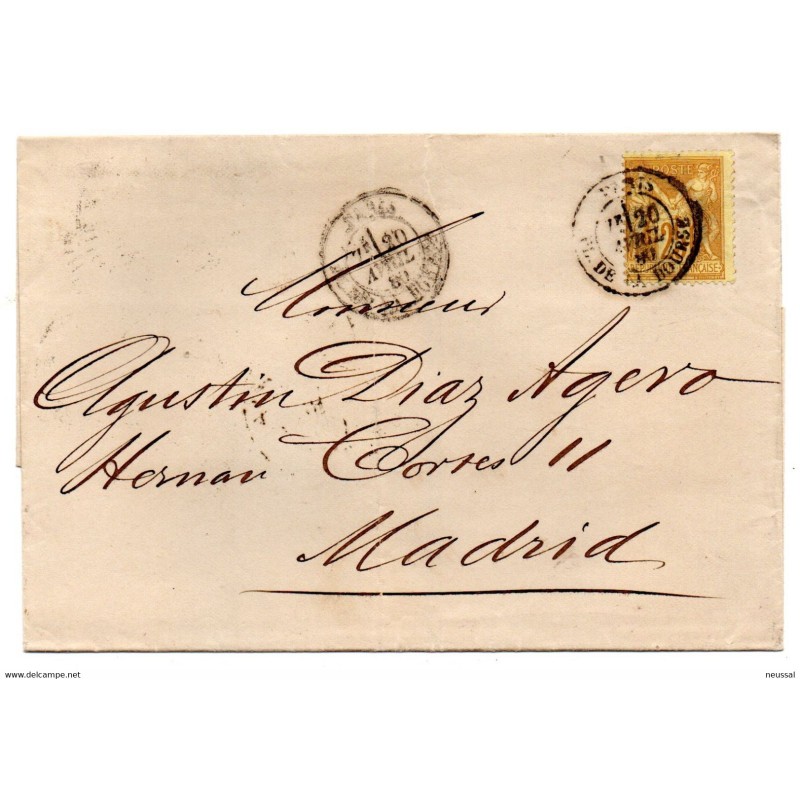 POSTE
FRANÇAISE
PARIS
20
AVRIL
80
PL. DE LA BOURSE
PARIS
20
AVRIL
80
Monsieur
Agustin Diaz Agero
Hernan Cortes 11
Madrid
www.delcampe.net
neussal